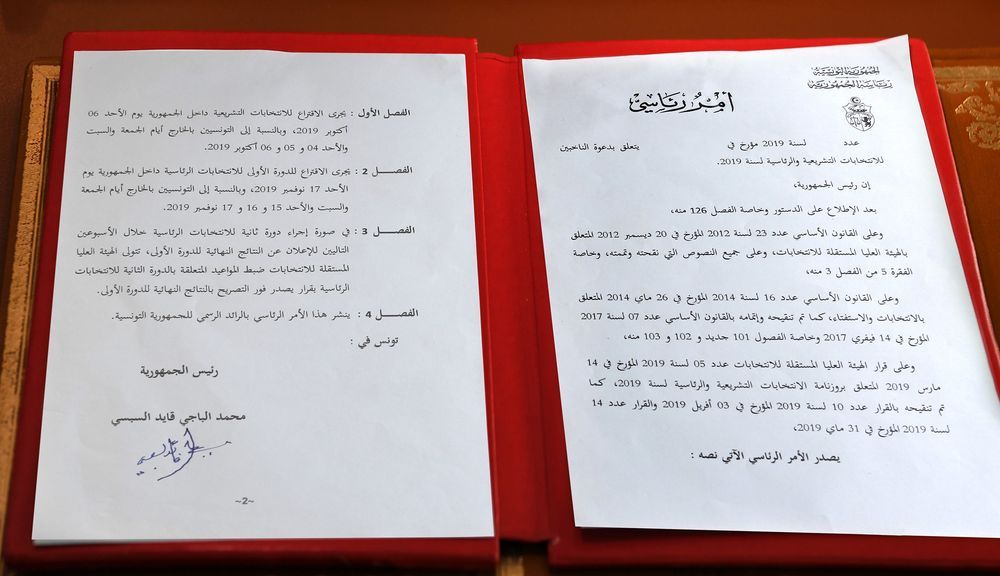 الجمهورية التونسية
رئاسة الجمهورية
أمر رئاسي
عدد لسنة 2019 مؤرخ في يتعلق بدعوة الناخبين
للانتخابات التشريعية والرئاسية لسنة 2019.
إن رئيس الجمهورية،
بعد الإطلاع على الدستور وخاصة الفصل 126 منه،
وعلى القانون الأساسي عدد 23 لسنة 2012 المؤرخ في 20 ديسمبر 2012 المتعلق
بالهيئة العليا المستقلة للانتخابات، وعلى جميع النصوص التي نقحته وتممته، وخاصة
الفقرة 5 من الفصل 3 منه،
وعلى القانون الأساسي عدد 16 لسنة 2014 المؤرخ في 26 ماي 2014 المتعلق
بالانتخابات والاستفتاء، كما تم تنقيحه وإتمامه بالقانون الأساسي عدد 07 لسنة 2017
المؤرخ في 14 فيفري 2017 وخاصة الفصول 101 جديد و 102 و 103 منه،
وعلى قرار الهيئة العليا المستقلة للانتخابات عدد 05 لسنة 2019 المؤرخ في 14
مارس 2019 المتعلق بروزنامة الانتخابات التشريعية والرئاسية لسنة 2019، كما
تم تنقيحه بالقرار عدد 10 لسنة 2019 المؤرخ في 03 أفريل 2019 والقرار عدد 14
لسنة 2019 المؤرخ في 31 ماي 2019،
يصدر الأمر الرئاسي الآتي نصه :
الفصل الأول : يجرى الاقتراع للانتخابات التشريعية داخل الجمهورية يوم الأحد 06
أكتوبر 2019، وبالنسبة إلى التونسيين بالخارج أيام الجمعة والسبت
والأحد 04 و 05 و 06 أكتوبر 2019.
الفصـــل 2 : يجرى الاقتراع للدورة الأولى للانتخابات الرئاسية داخل الجمهورية يوم
الأحد 17 نوفمبر 2019، وبالنسبة إلى التونسيين بالخارج أيام الجمعة
والسبت والأحد 15 و 16 و 17 نوفمبر 2019.
الفصـــل 3 : في صورة إجراء دورة ثانية للانتخابات الرئاسية خلال الأسبوعين
التاليين للإعلان عن النتائج النهائية للدورة الأولى، تتولى الهيئة العليا
المستقلة للانتخابات ضبط المواعيد المتعلقة بالدورة الثانية للانتخابات
الرئاسية بقرار يصدر فور التصريح بالنتائج النهائية للدورة الأولى.
الفصـــل 4 : ينشر هذا الأمر الرئاسي بالرائد الرسمي للجمهورية التونسية.
تونس في :
رئيس الجمهورية
محمد الباجي قايد السبسي
~2~